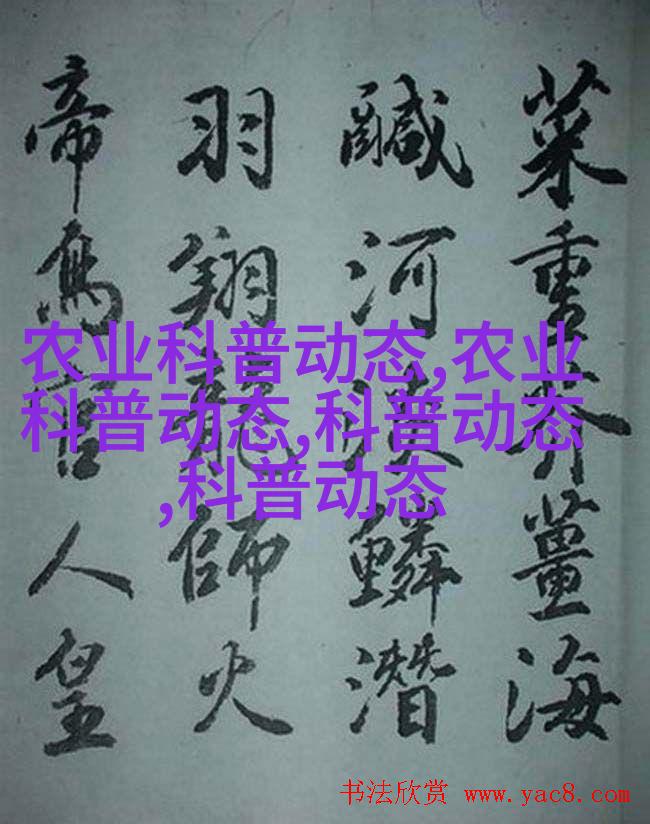 菜重芥薑海
鹹河淡鱗潛
羽翔龍師火
帝鳥官人皇
农业科普动态,农业
科普动态,科普动态
,科普动态
书法欣赏 www.yac8.com